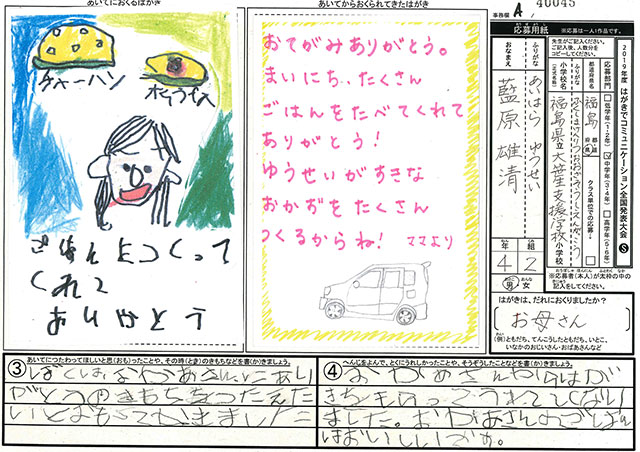 あいてにおくるはがき
チャーハン
ごはんおつくって
くれて
ありがとう
あいてからおくられてきたはがき
おてがみありがとう。
まいにち、たくさん
ごはんをたべてくれて
ありがとう!
ゆうせいがすきな
おかずをたくさん
つくるからね! ママより
事務欄 A / 40045
応募用紙
(※応募は一人1作品です)
2019年度 はがきでコミュニケーション全国発表大会 S
応募部門
低学年(1・2年)
中学年(3・4年)
高学年(5・6年)
クラス単位での応募
都道府県名
福島 県
ふりがな
小学校名
(正式名称)
福島県立大笹生支援学校 小学校
ふりがな
おなまえ
あいはら ゆうせい
藍原 雄清
4 年
2 組
男 女
※応募者(本人)が太枠の中の
記入をしてください。
はがきは、だれにおくりましたか?
お母さん
(例)ともだち、てんこうしたともだち、いとこ、
いなかのおじいさん・おばあさんなど
③ あいてにつたわってほしいと思(おも)ったことや、その時(とき)のきもちなどを書(か)きましょう。
ぼくは、おかあさんにあり
がとうのきもちをつたえた
いとおもってかきました
④ へんじをよんで、とくにうれしかったことや、そうぞうしたことなどを書(か)きましょう。
おかあさんからはが
きをもらってうれしくなり
ました。おかあさんのごはん
はおいしいです。